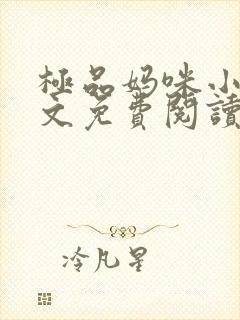 極品妈咪小
文免費閱讀
冷凡星